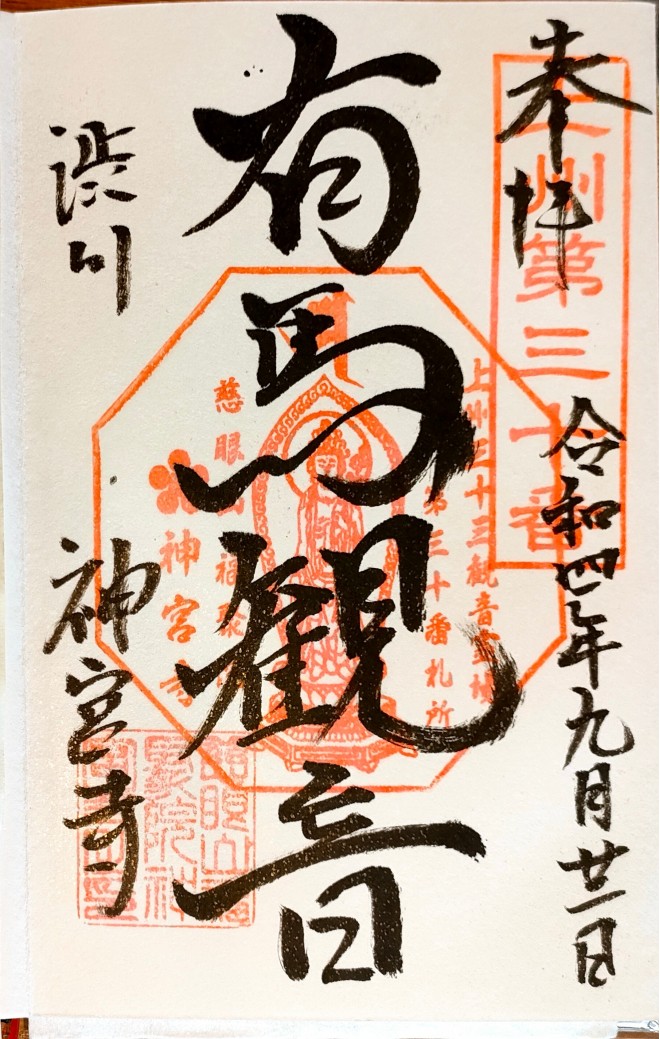 奉拝
上州第三十番
令和四年九月廿一日
有馬観音
上州三十三観音霊場
第三十番札所
慈眼山福聚院
神宮寺
渋川
神宮寺